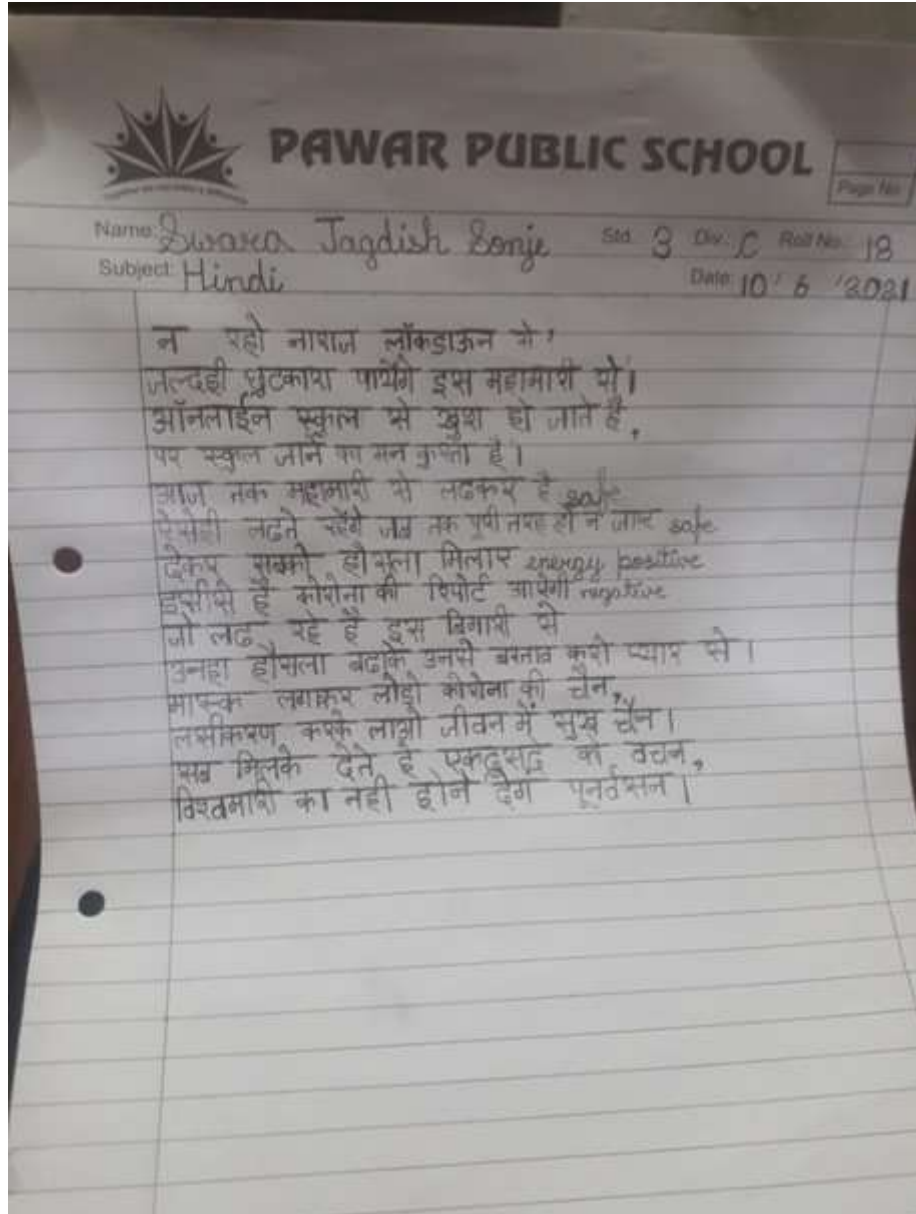 PAWAR PUBLIC SCHOOL
Page No
Name: Swara Jagdish Sonje Std. 3 Div.: C Roll No.: 18
Subject: Hindi Date: 10 / 6 / 2021
न रहो नाराज लॉकडाऊन से,
जल्दही छुटकारा पायेंगे इस महामारी से।
ऑनलाईन स्कूल से खुश हो जाते है,
पर स्कुल जाने का मन करता है।
आज तक महामारी से लढकर है safe
ऐसेही लढते रहेंगे जब तक पूरी तरह हो न जाए safe
देकर सबको हौसला मिलाए energy positive
इसीसे है कोरोना की रिपोर्ट आयेगी negative
जो लढ रहे है इस बिमारी से
उनहा हौसला बढाके उनसे बरताव करो प्यार से।
मास्क लगाकर तोड़ो कोरोना की चैन,
लसीकरण करके लाओ जीवन में सुख चैन।
सब मिलके देते है एकदुसरे को वचन,
विश्वमारी का नही होने देंगे पूनर्वसन।